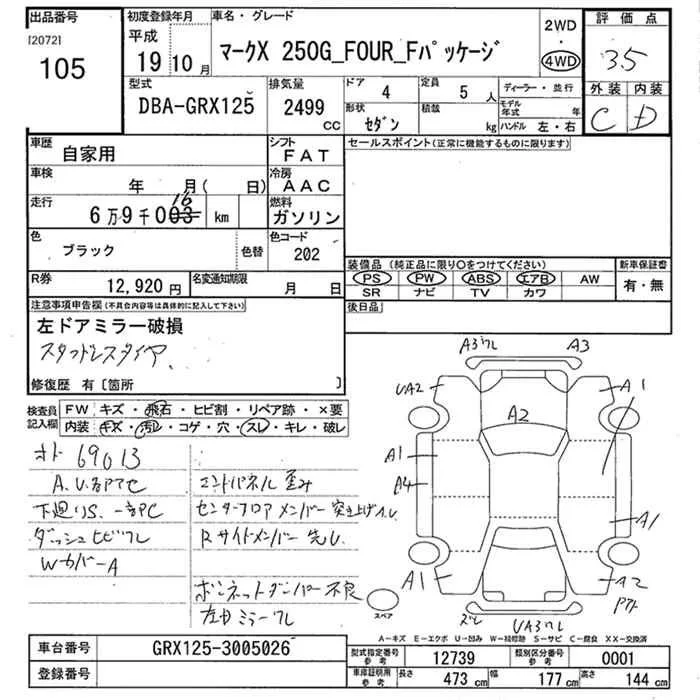 出品番号
[2072]
105
初度登録年月
平成
19 10 月
車名・グレード
マークX 250G_FOUR_Fパッケージ
2WD
・
4WD
評価点
3.5
外装 内装
C D
型式
DBA-GRX125
排気量
2499
CC
ドア 4
定員 5 人
形状 セダン
積載 kg
ディーラー・並行
モデル年式 年
ハンドル 左・右
車歴 自家用
シフト FAT
車検 年 月( 日)
冷房 AAC
走行 6万9千003 16 km
燃料 ガソリン
色 ブラック 色替
色コード 202
R券 12,920円
名変通知期限 月 日
セールスポイント(正常に機能するものに限ります)
装備品(純正品に限り○をつけてください)
PS PW ABS エアB AW
SR ナビ TV カワ
新車保証書
有・無
後日品
注意事項申告欄(不具合内容等は具体的に記入して下さい)
左ドアミラー破損
スタッドレスタイヤ
修復歴 有〔箇所 〕
検査員記入欄
FW キズ・飛石・ヒビ割・リペア跡・×要
内装 キズ・汚レ・コゲ・穴・スレ・キレ・破レ
オド 69013
下廻りS. 一部PC
ダッシュヒビワレ
WカバーA
エンドパネル歪み
センターフロアメンバー突き上げA.U
Rサイドメンバー先U
ボンネットダンパー不良
左ドミラーワレ
A3ワレ A3
UA2 A1
A2
A1
A4
A1
A1 A2
スレ
UA3ワレ
スペア
A-キズ E-エクボ U-凹み W-補修跡 S-サビ C-腐食 XX-交換済
車台番号 GRX125-3005026
登録番号
型式指定番号 参考 12739
類別区分番号 参考 0001
車庫証明用 参考 長さ 473 cm 幅 177 cm 高さ 144 cm